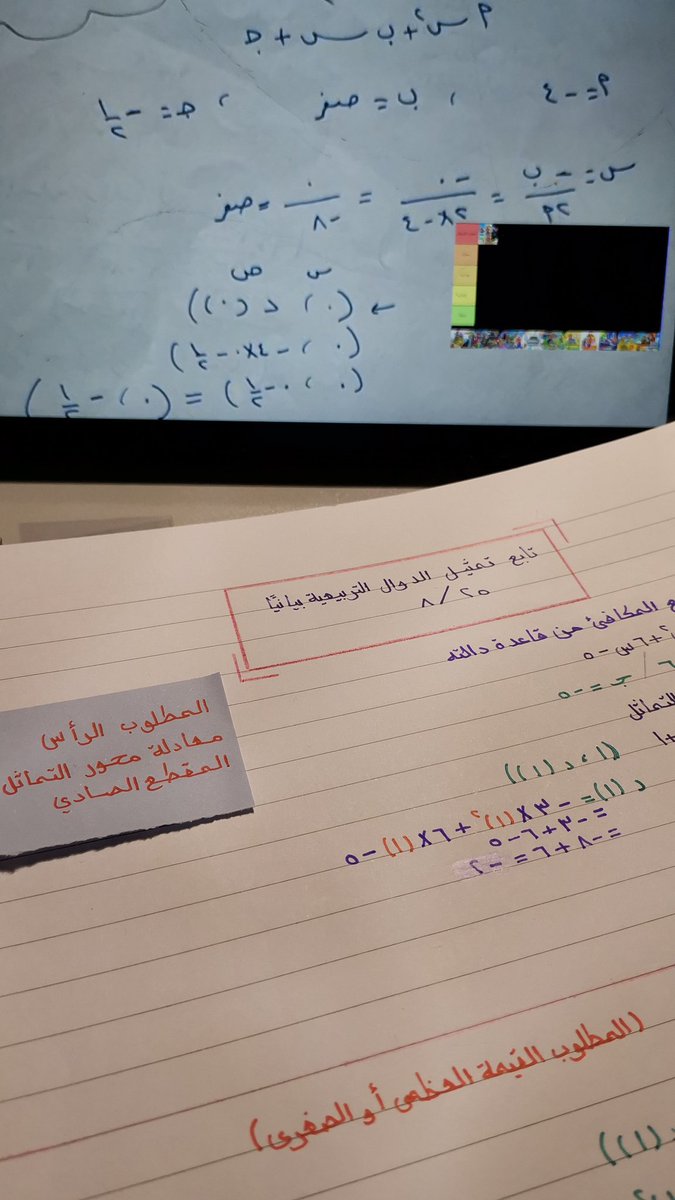 م س٢ + ب س + ج
م = -٤ ، ب = صفر ، ج = -١/٢
س = -ب/٢م = -٠/٢×-٤ = ٠/-٨ = صفر
س ص
← (٠ ، د(٠))
(٠ ، -٤×٠ - ١/٢)
(٠ ، ٠ - ١/٢) = (٠ ، -١/٢)
تابع تمثيل الدوال التربيعية بيانيًا
٨/٢٥
المكافئ من قاعدة دالته
+٦س-٥
٦ / ج = -٥
التماثل
+١
(١ ، د(١))
د(١) = -٣×(١)٢+٦×(١)-٥
= -٣+٦-٥
= -٨+٦ = -٢
المطلوب الرأس
معادلة محور التماثل
المقطع الصادي
(المطلوب القيمة العظمى أو الصغرى)
(١))